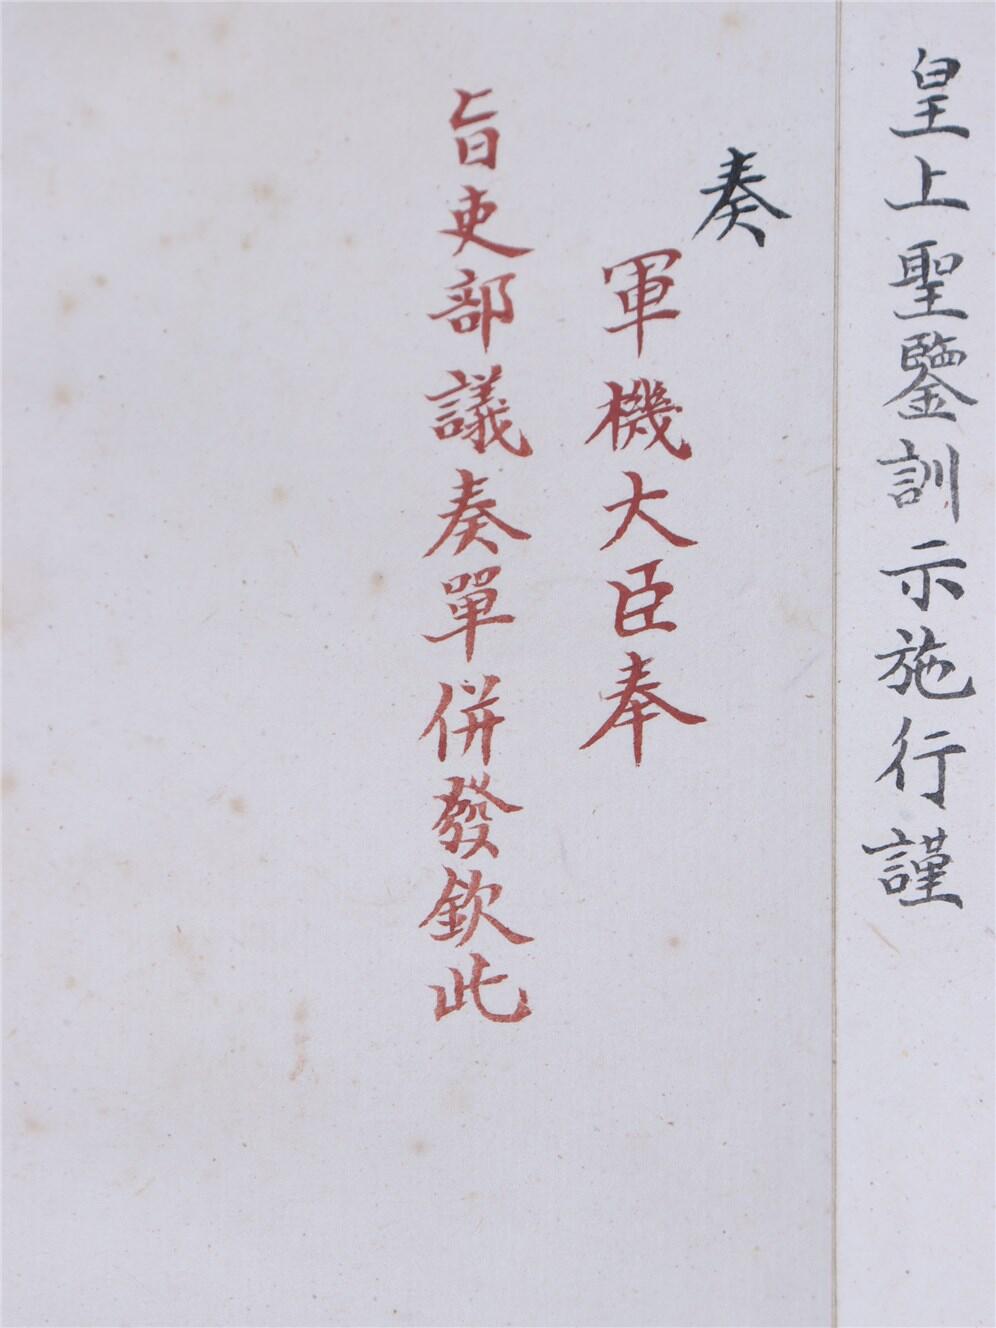 皇上聖鑒訓示施行謹
奏
軍機大臣奉
旨吏部議奏單併發欽此